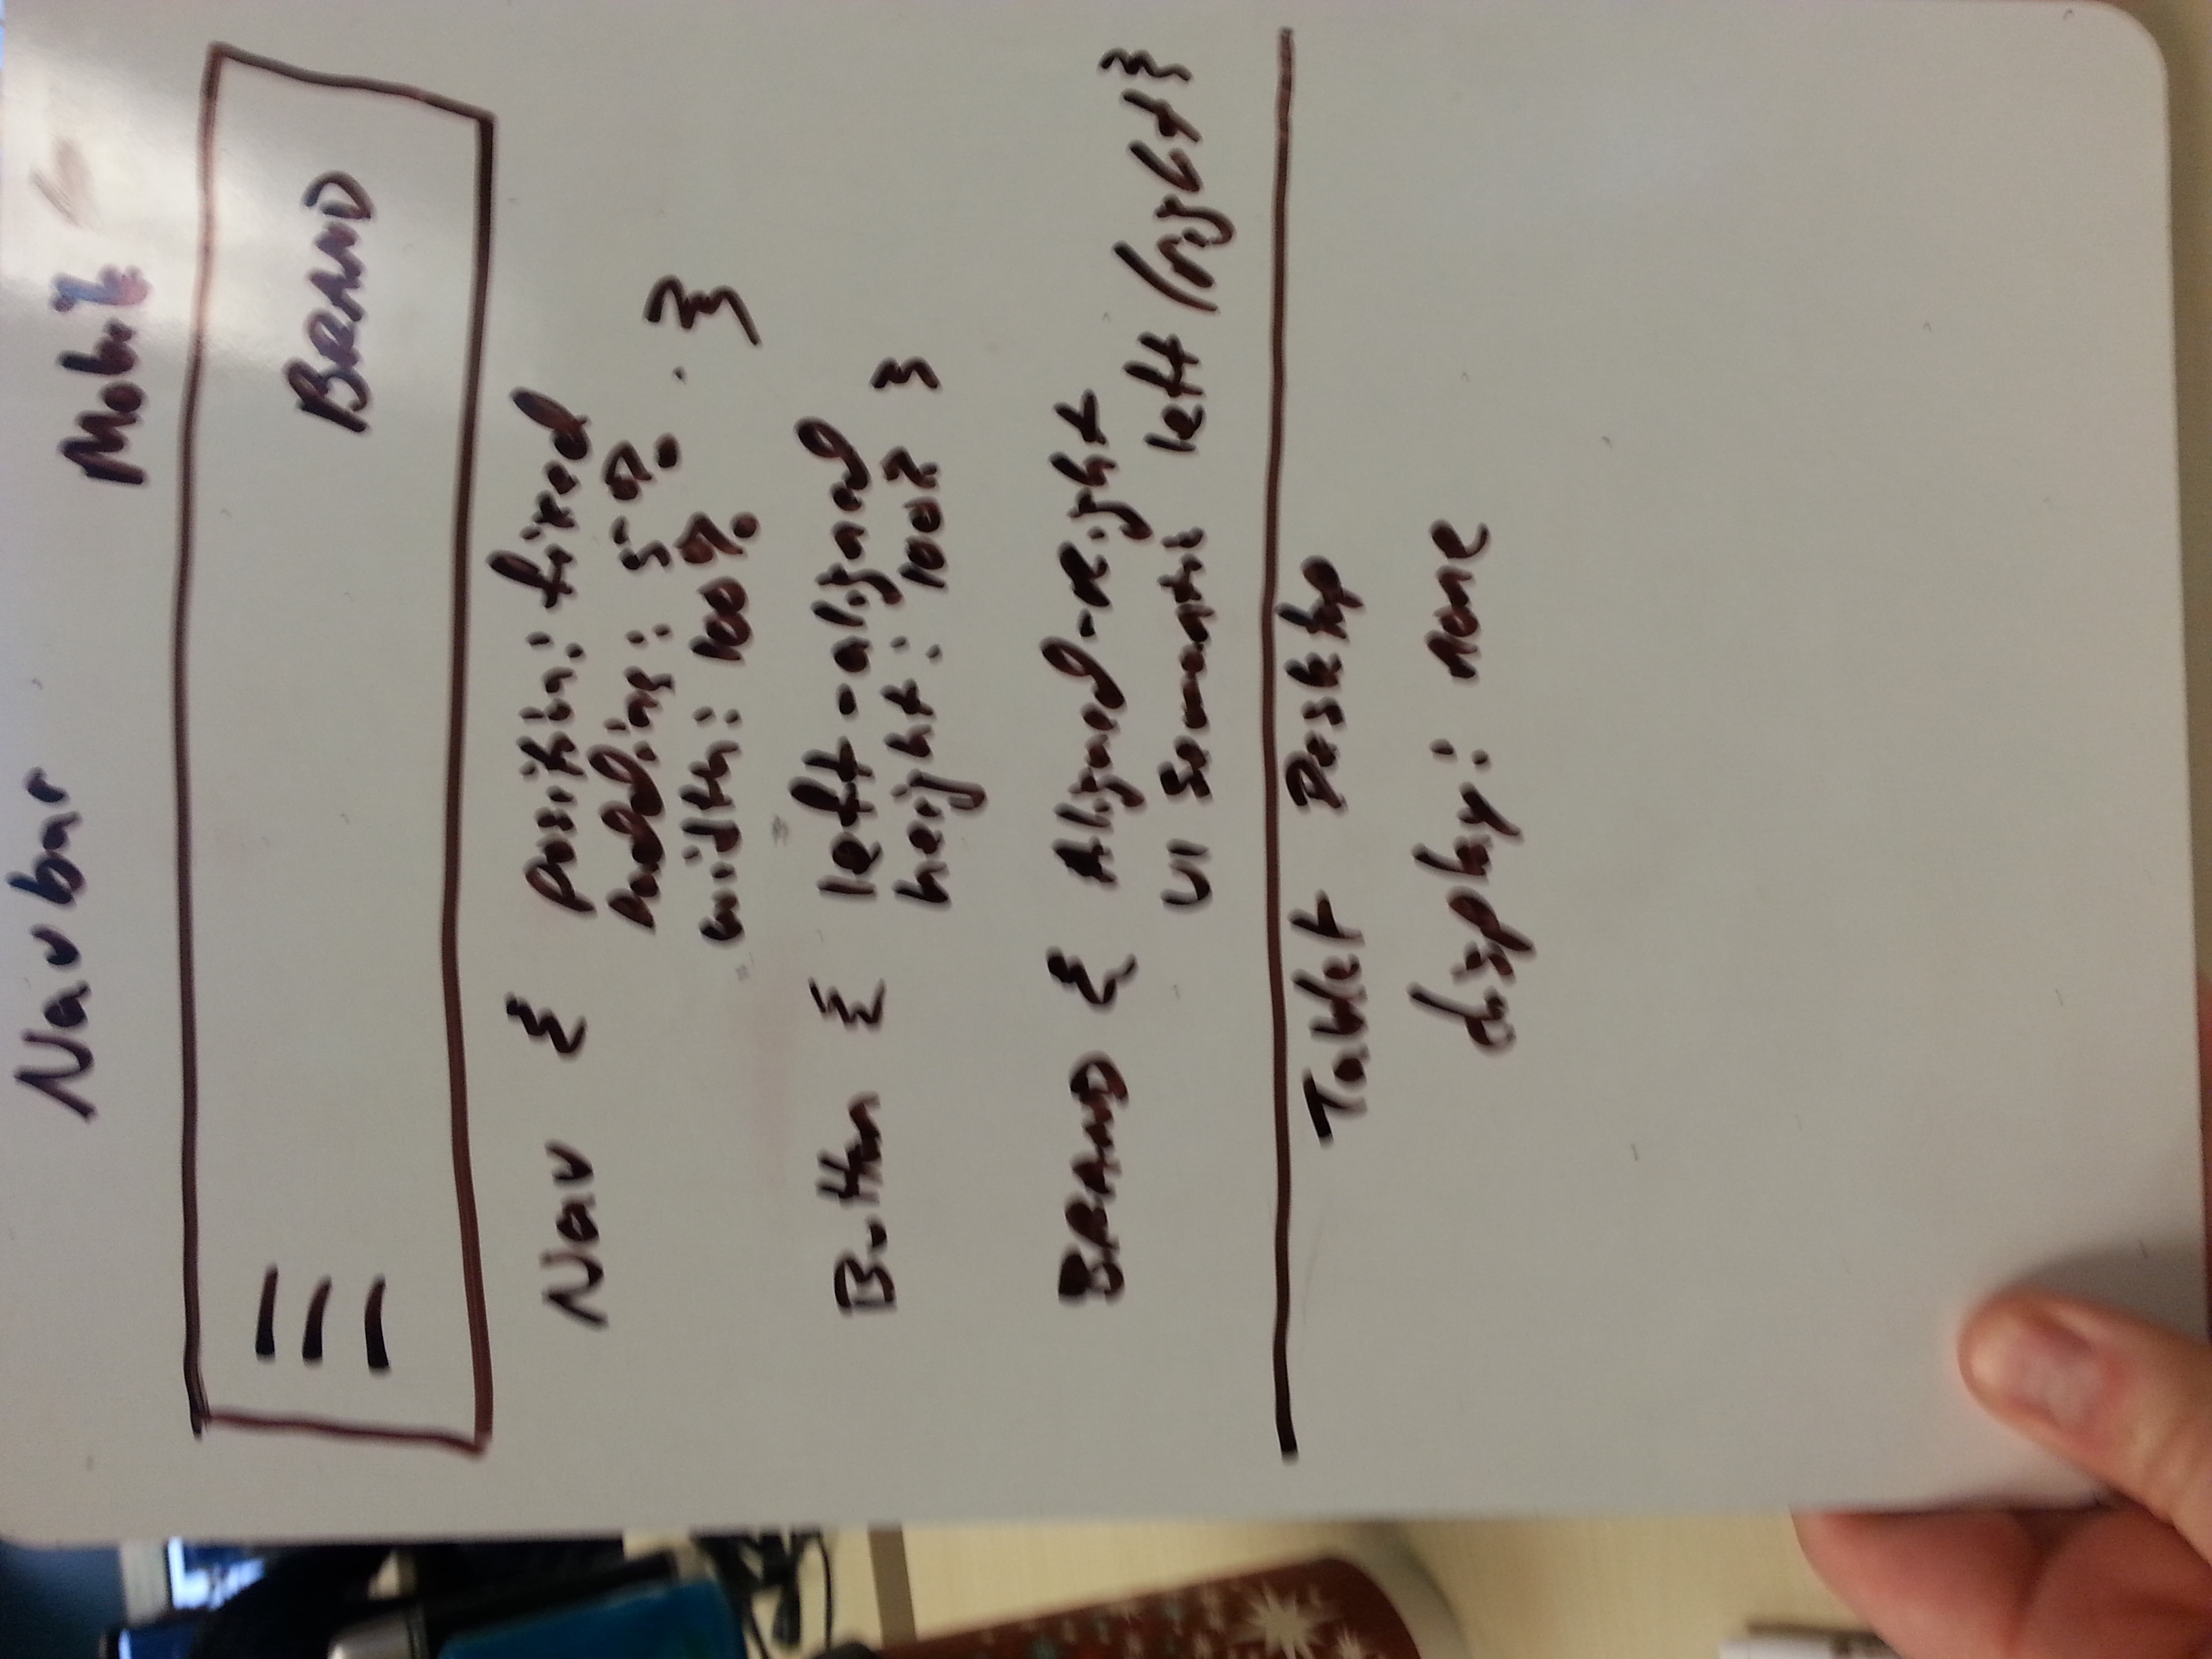 Navbar
Mobile
BRAND
Nav { position: fixed
padding: 5%
width: 100% }
Button { left-aligned
height: 100% }
BRAND { Aligned-Right
UI Semantic left/right }
Tablet Desktop
display: none